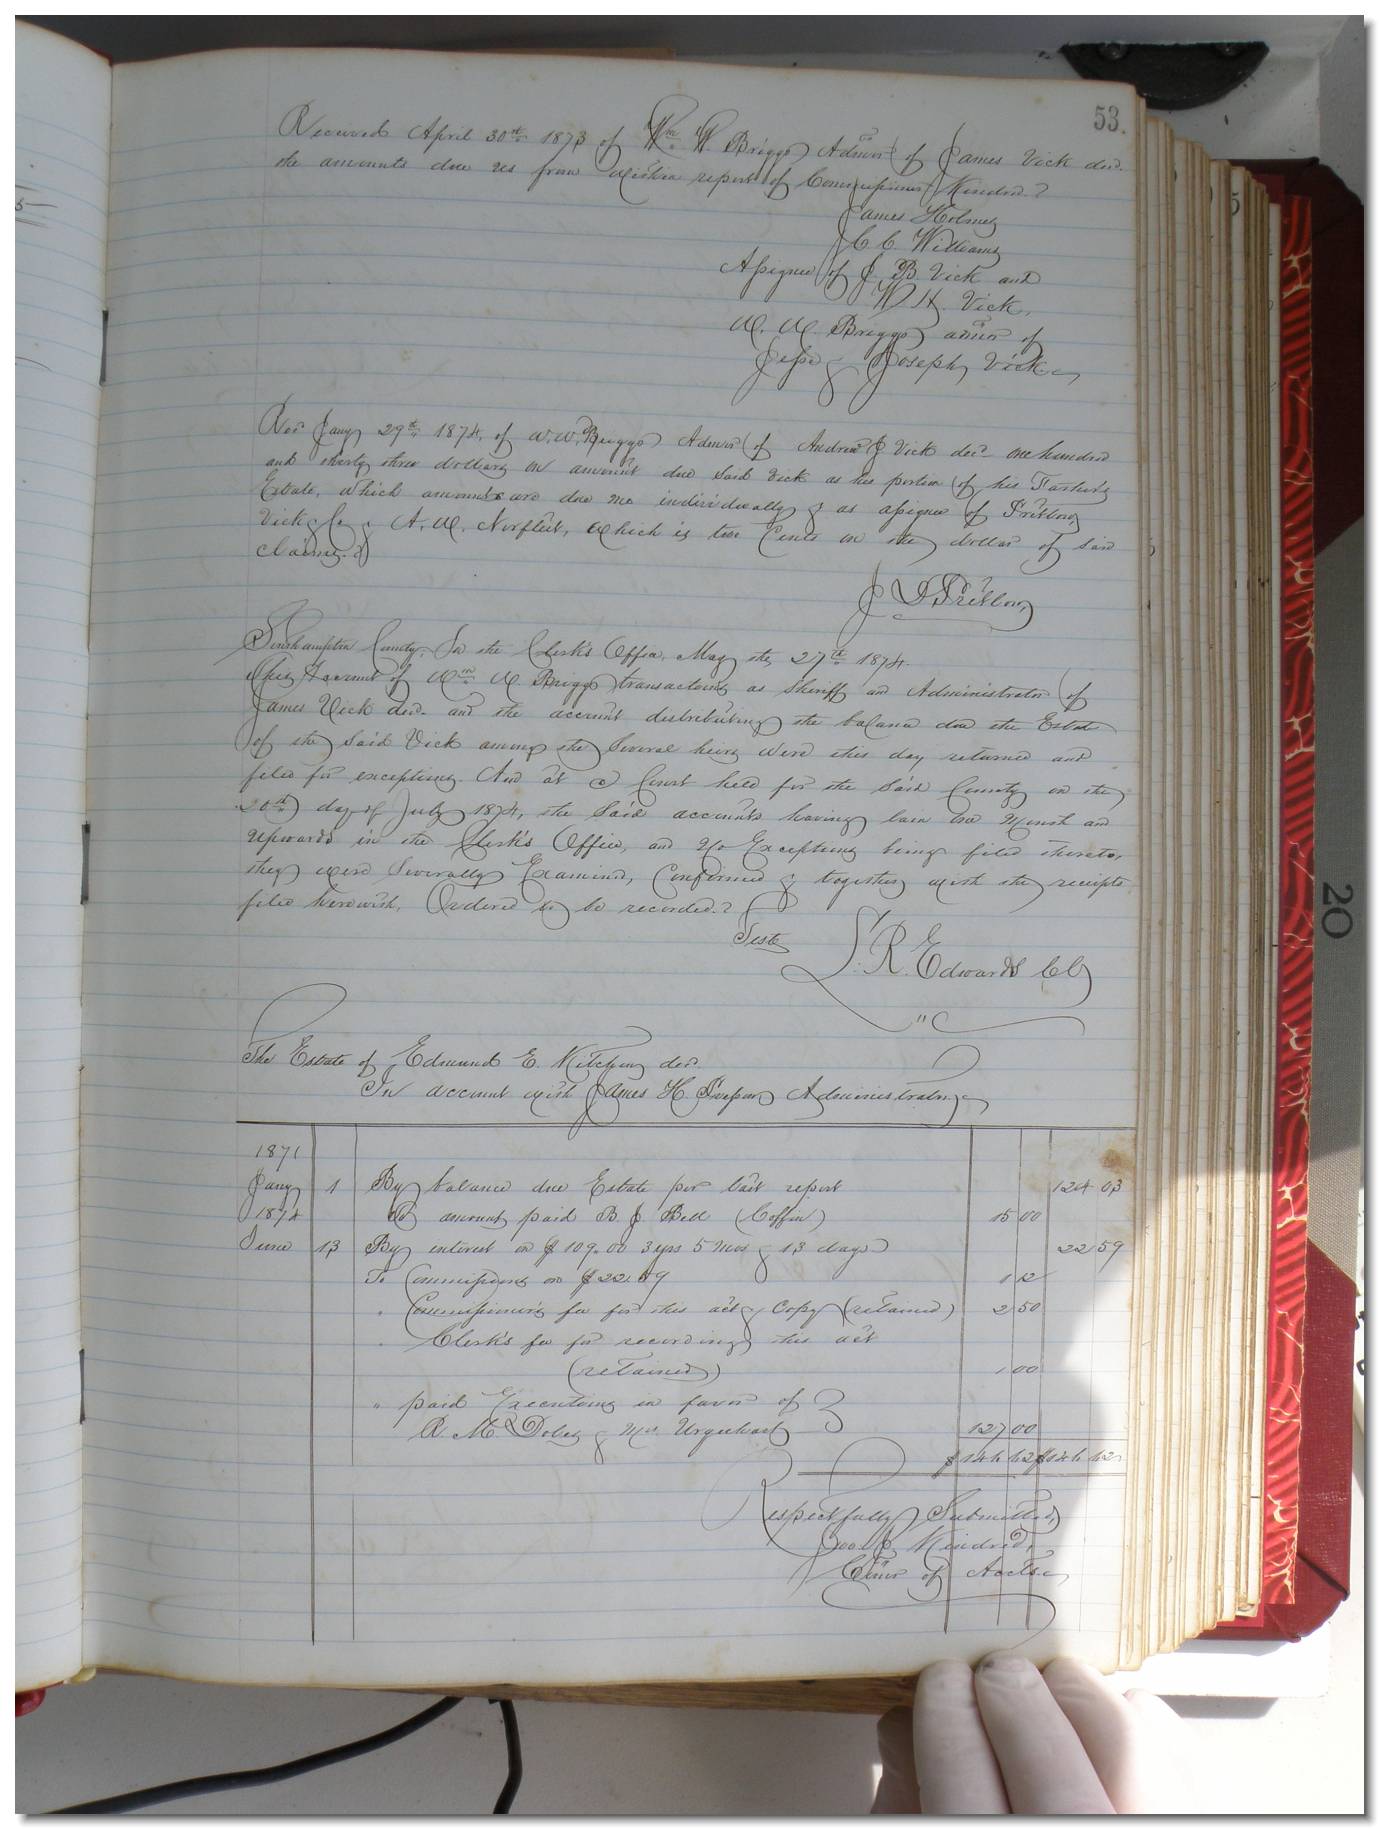 53.
Received April 30th 1873 of Wm W Briggs Admor of James Vick decd.
the amounts due us from within report of Commissioner Kindred.
James Holmes
C. C. Williams
Assignee of J. B. Vick and
W. H. Vick.
W. W. Briggs admor of
Jesse & Joseph Vick
Recd Jany 29th 1874, of W. W. Briggs Admor of Andrew J Vick decd one hundred
and thirty three dollars on amount due said Vick as his portion of his Father's
Estate, which amounts are due me individually & as assignee of Pretlow,
Vick & Co & A. W. Norfleet, which is two Cents on the dollar of said
claims.
J D Pretlow
Southampton County: In the Clerk's Office, May the 27th 1874.
This Account of Wm W. Briggs transactions as Sheriff and Administrator of
James Vick decd. and the account distributing the balance due the Estate
of the said Vick among the several heirs were this day returned and
filed for exceptions. And at a Court held for the said County on the
20th day of July 1874, the said accounts having lain one Month and
upwards in the Clerk's Office, and no Exceptions being filed thereto,
they were Severally Examined, Confirmed & together with the receipts
filed therewith, Ordered to be recorded.
Teste
L. R. Edwards CC
"
The Estate of Edmund E. Kitchen decd.
In account with James H. Administrator
1871
Jany 1 By balance due Estate per last report 124 03
1874 To amount paid B. J. Bell (Coffin) 15 00
June 13 By interest on $109.00 3 yrs 5 Mos & 13 days 22 59
To Commissions on $22.59 1 12
" Commissioner's fee for this act & Copy (retained) 2 50
" Clerk's fee for recording this act
(retained) 1 00
" paid Executions in favor of
R. M. Dobey & Mrs. Urquhart 127 00
$146 62 $146 62
Respectfully Submitted,
Jno J. Kindred,
Comr of Accts.
20